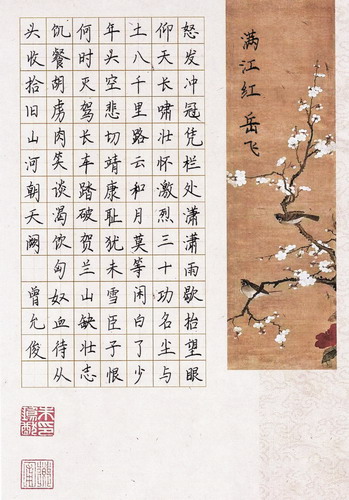 满江红 岳飞
怒发冲冠凭栏处潇潇雨歇抬望眼
仰天长啸壮怀激烈三十功名尘与
土八千里路云和月莫等闲白了少
年头空悲切靖康耻犹未雪臣子恨
何时灭驾长车踏破贺兰山缺壮志
饥餐胡虏肉笑谈渴饮匈奴血待从
头收拾旧山河朝天阙 曾允俊